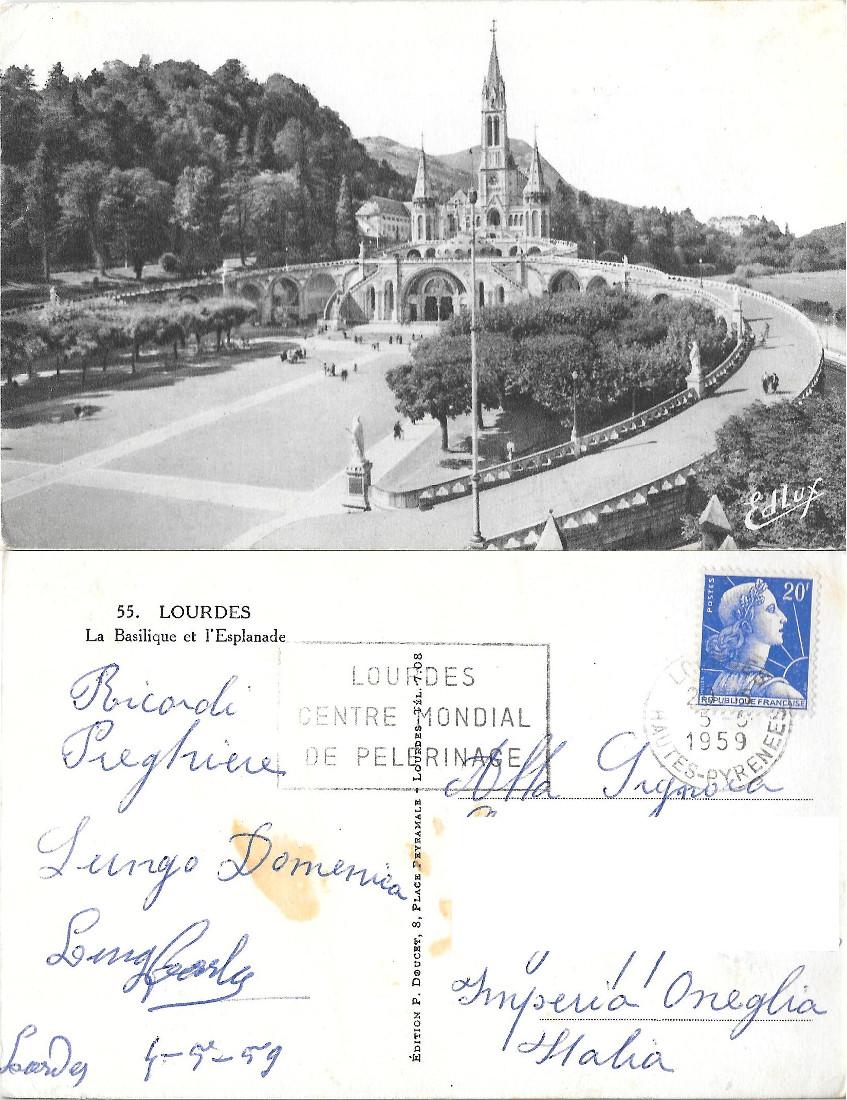 Edlux
55. LOURDES
La Basilique et l'Esplanade
LOURDES
CENTRE MONDIAL
DE PELERINAGE
POSTES
20F
REPUBLIQUE FRANÇAISE
5-5
1959
HAUTES-PYRENEES
Ricordi
Preghiere
Lungo Domenica
Lungo Carlo
Lourdes 4-5-59
EDITION P. DOUCET, 8, PLACE PEYRAMALE - LOURDES - TÉL. 7.08
Alla Signora
Imperia Oneglia
Italia